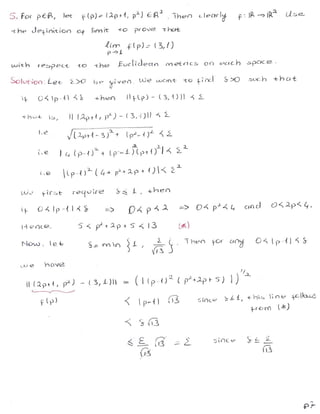 5. For p∈ℝ, let f(p)=(2p+1, p²) ∈ℝ². Then clearly f: ℝ → ℝ². Use
the definition of limit to prove that
lim f(p) = (3,1)
p→1
with respect to the Euclidean metrics on each space.
Solution: Let ε>0 be given. We want to find δ>0 such that
if 0<|p-1|<δ then ||f(p) - (3,1)|| < ε
that is, || (2p+1, p²) - (3,1)|| < ε
i.e √((2p+1-3)² + (p²-1)²) < ε
i.e | 4(p-1)² + (p-1)²(p+1)² | < ε²
i.e |(p-1)² (4+ p²+2p+1)| < ε²
We first require δ≤1, then
if 0<|p-1|<δ ⇒ 0<p<2 ⇒ 0<p²<4 and 0<2p<4.
Hence, 5 < p²+2p+5 < 13 (*)
Now, let δ = min {1, ε/√13}. Then for any 0<|p-1|<δ
we have
|| (2p+1, p²) - (3,1)|| = (|(p-1)² (p²+2p+5)|)^1/2
f(p) < |p-1| √13 since δ≤1, this line follows
from (*)
< δ√13
≤ ε/√13 √13 = ε since δ ≤ ε/√13